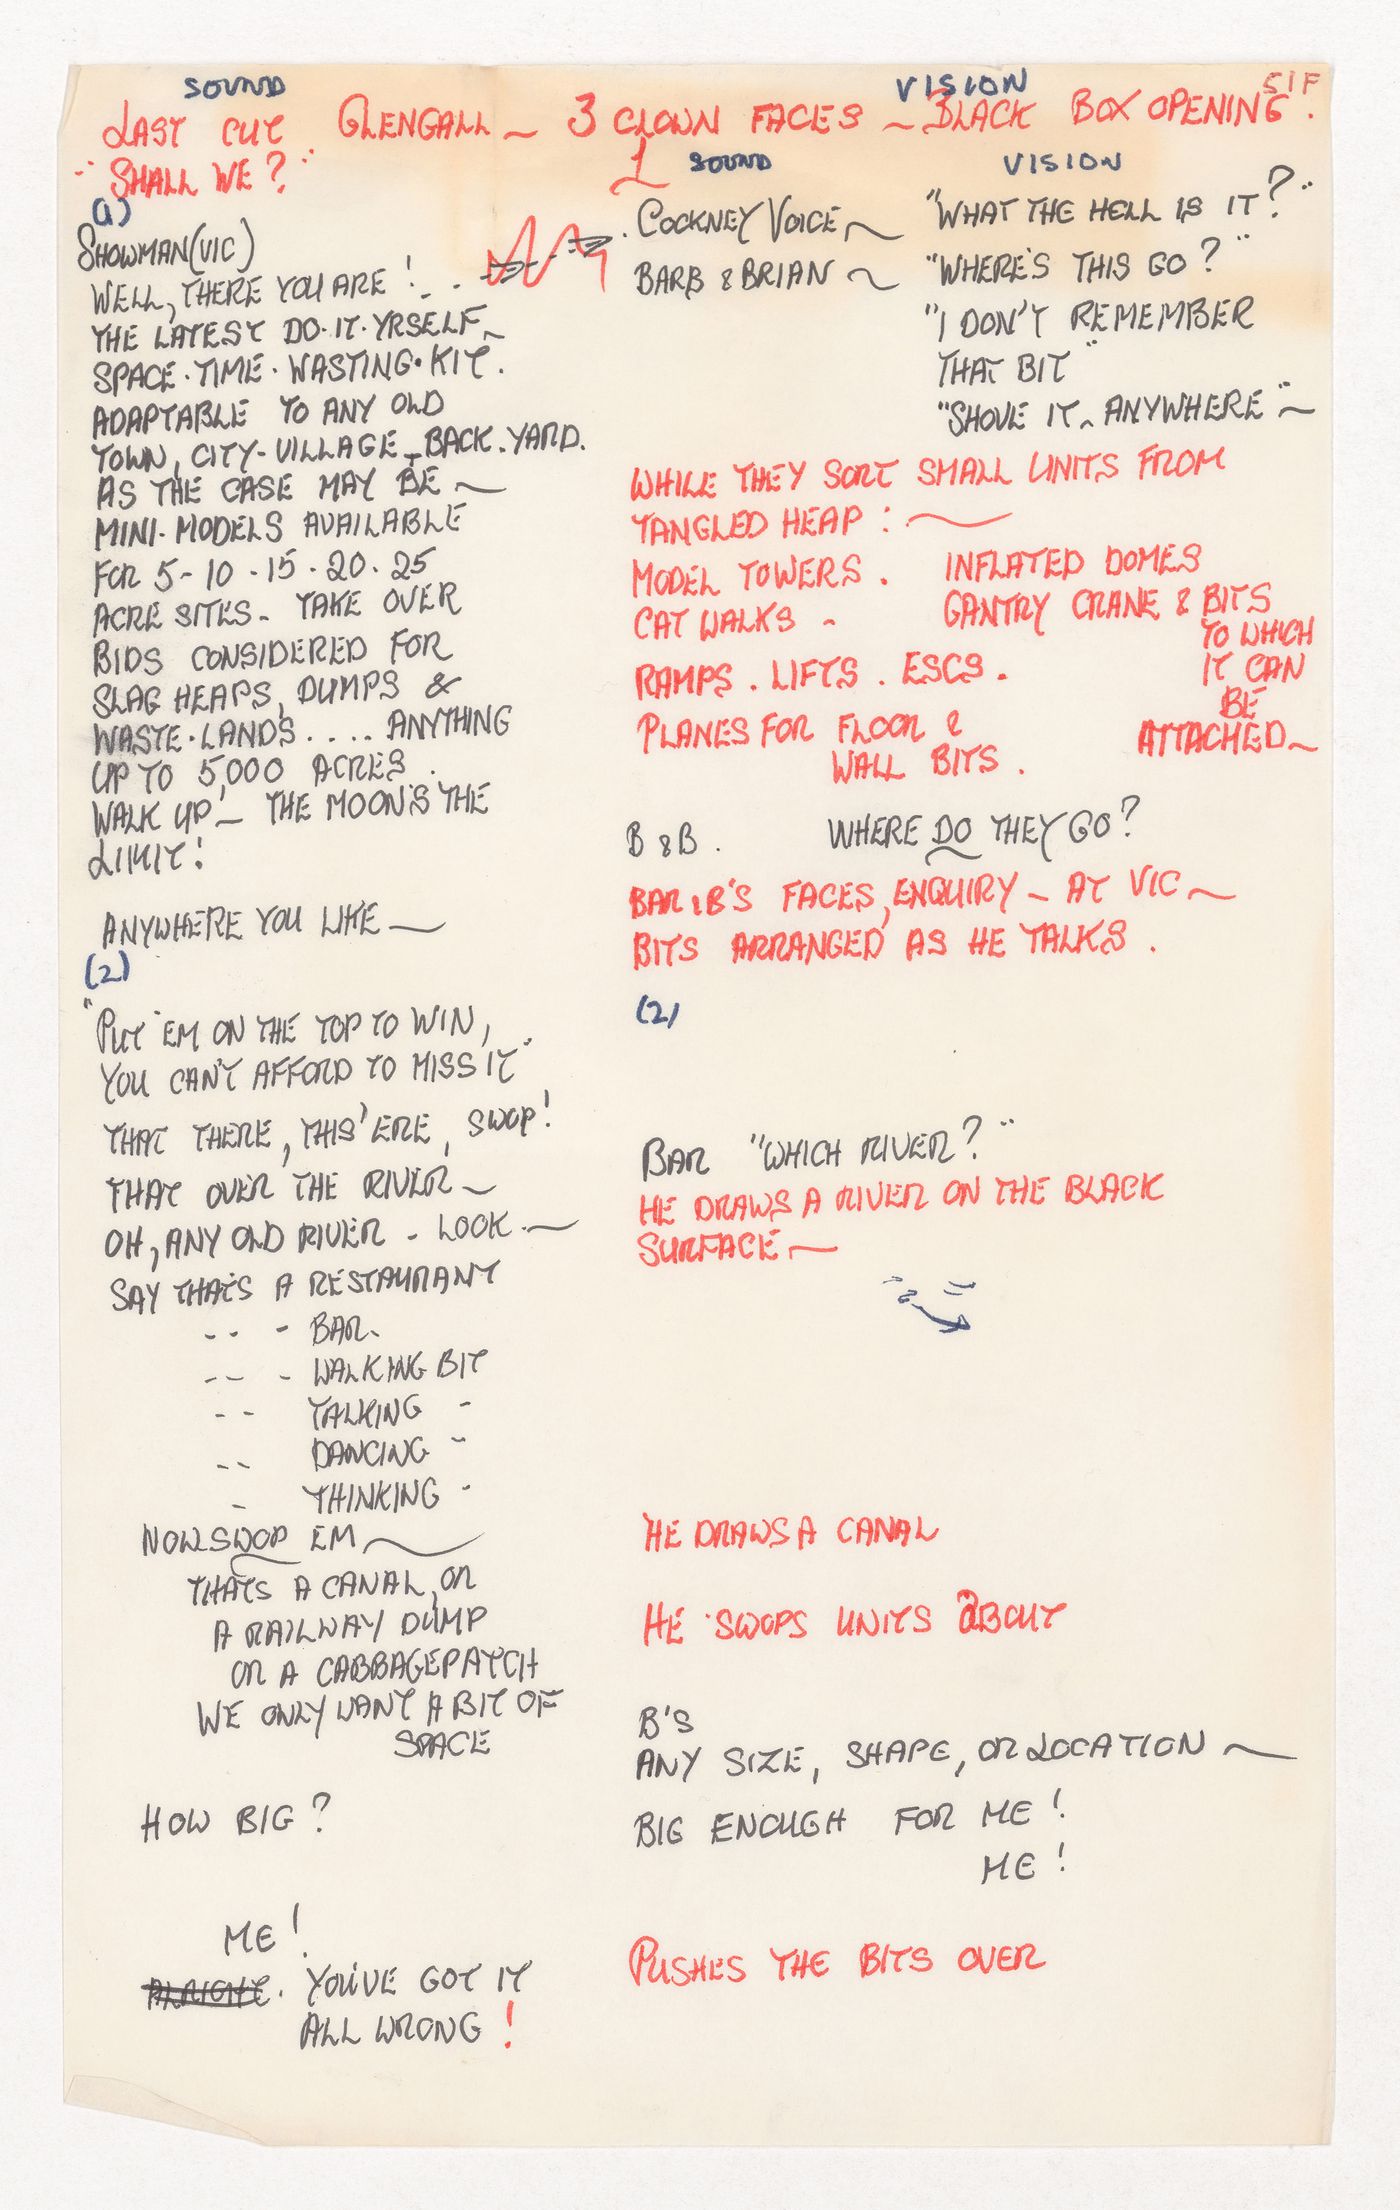 SOUND
VISION
51F
LAST CUT GLENGALL ~ 3 CLOWN FACES ~ BLACK BOX OPENING.
"SHALL WE?"
(1)
SHOWMAN (VIC)
WELL, THERE YOU ARE!
THE LATEST DO·IT·YRSELF
SPACE·TIME·WASTING·KIT.
ADAPTABLE TO ANY OLD
TOWN, CITY-VILLAGE-BACK·YARD.
AS THE CASE MAY BE ~
MINI·MODELS AVAILABLE
FOR 5-10·15·20·25
ACRE SITES. TAKE OVER
BIDS CONSIDERED FOR
SLAG HEAPS, DUMPS &
WASTE·LANDS.... ANYTHING
UP TO 5,000 ACRES.
WALK UP! ~ THE MOON'S THE
LIMIT!
ANYWHERE YOU LIKE ~
(2)
"PUT 'EM ON THE TOP TO WIN,
YOU CAN'T AFFORD TO MISS IT"
THAT THERE, THIS 'ERE, SWOP!
THAT OVER THE RIVER ~
OH, ANY OLD RIVER - LOOK. ~
SAY THAT'S A RESTAURANT
-- - BAR.
-- - WALKING BIT
-- TALKING "
-- DANCING "
- THINKING "
NOW SWOP EM ~
THATS A CANAL, OR
A RAILWAY DUMP
OR A CABBAGEPATCH
WE ONLY WANT A BIT OF
SPACE
HOW BIG?
ME!
ALRIGHT. YOU'VE GOT IT
ALL WRONG!
1
SOUND VISION
COCKNEY VOICE ~ "WHAT THE HELL IS IT?"
BARB & BRIAN ~ "WHERE'S THIS GO?"
"I DON'T REMEMBER
THAT BIT"
"SHOVE IT ~ ANYWHERE" ~
WHILE THEY SORT SMALL UNITS FROM
TANGLED HEAP: ~
MODEL TOWERS. INFLATED DOMES
CAT WALKS - GANTRY CRANE & BITS
TO WHICH
RAMPS. LIFTS. ESCS. IT CAN
BE
PLANES FOR FLOOR & ATTACHED ~
WALL BITS.
B & B. WHERE DO THEY GO?
BAR & B'S FACES, ENQUIRY ~ AT VIC ~
BITS ARRANGED AS HE TALKS.
(2)
BAR "WHICH RIVER?"
HE DRAWS A RIVER ON THE BLACK
SURFACE ~
HE DRAWS A CANAL
HE SWOPS UNITS ABOUT
B'S
ANY SIZE, SHAPE, OR LOCATION ~
BIG ENOUGH FOR ME!
ME!
PUSHES THE BITS OVER